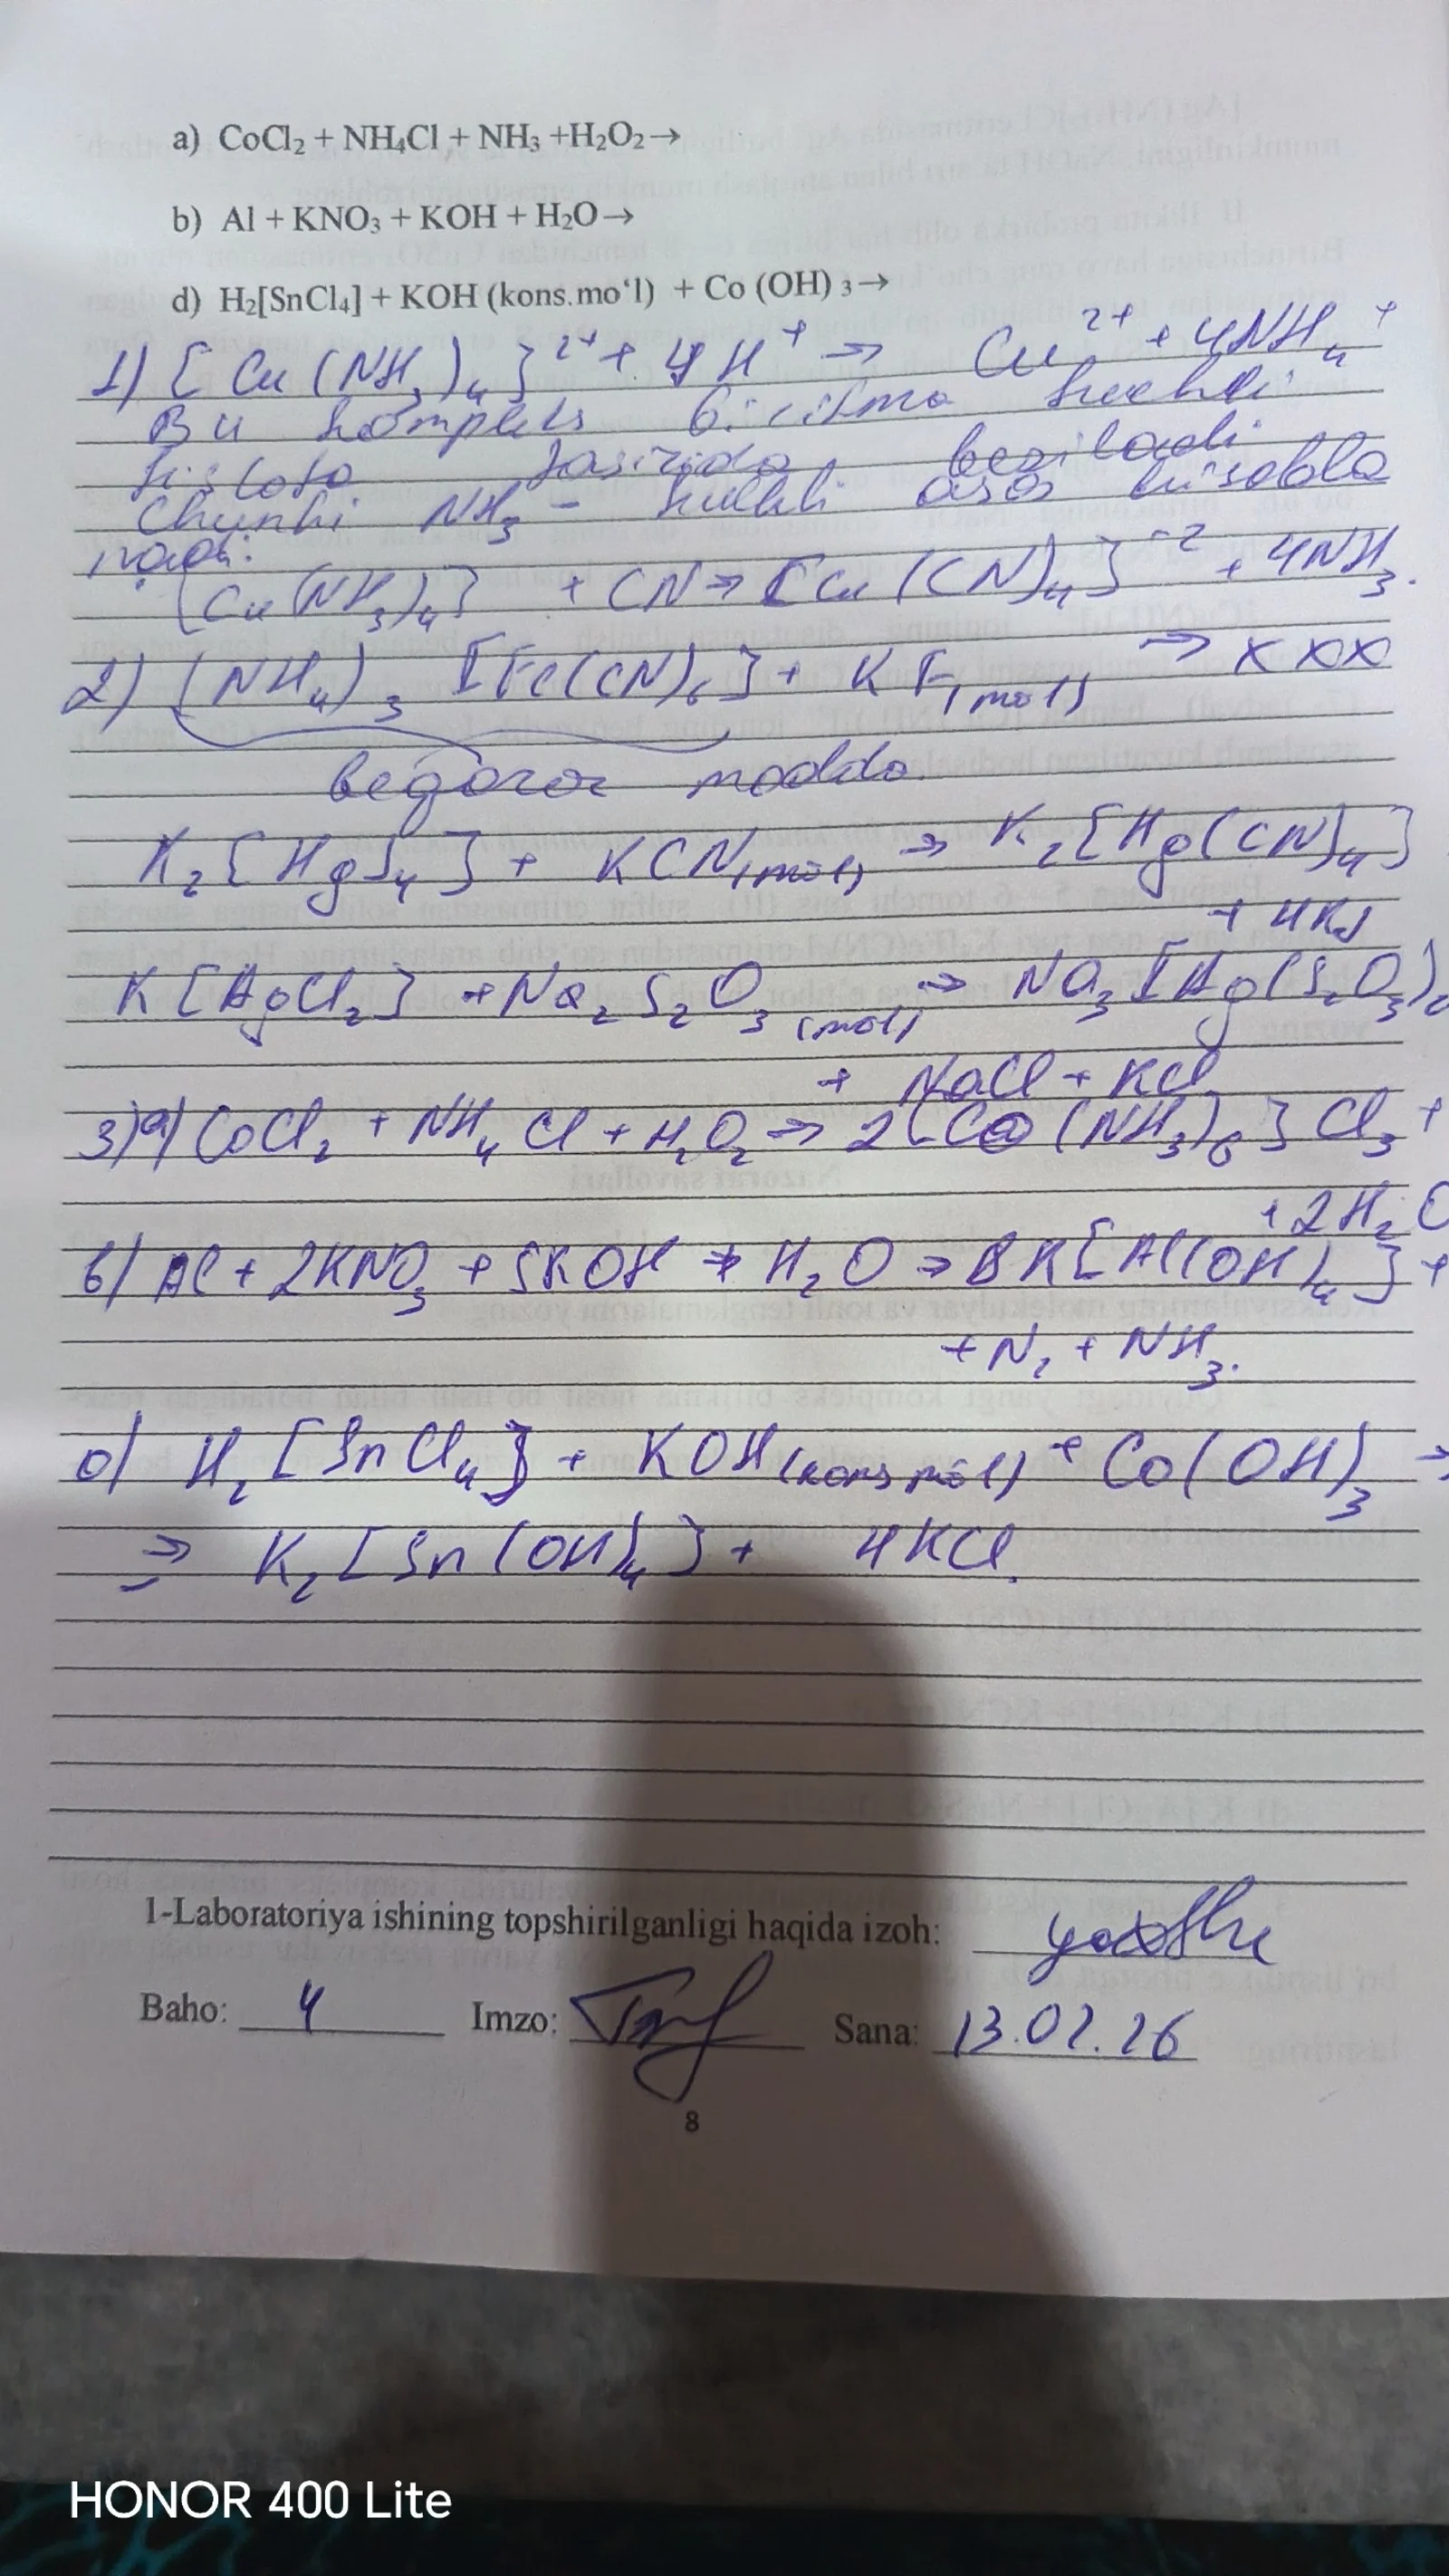 a) CoCl₂ + NH₄Cl + NH₃ +H₂O₂→
b) Al + KNO₃ + KOH + H₂O→
d) H₂[SnCl₄] + KOH (kons.mo‘l) + Co (OH) ₃→
1) [Cu(NH₃)₄]²⁺ + 4H⁺ → Cu²⁺ + 4NH₄⁺
Bu kompleks birikma kuchli
kislota ta'sirida
Chunki NH₃ - kuchli asos hisobla
nadi.
[Cu(NH₃)₄] + CN → [Cu(CN)₄]⁻² + 4NH₃.
2) (NH₄)₃ [Fe(CN)₆] + KF(mol) → xxx
beqaror modda.
K₂[HgJ₄] + KCN(mol) → K₂[Hg(CN)₄]
+ 4KJ
K[AgCl₂] + Na₂S₂O₃(mol) → Na₃[Ag(S₂O₃)₂
+ NaCl + KCl
3) a) CoCl₂ + NH₄Cl + H₂O₂ → 2[Co(NH₃)₆]Cl₃ +
+ 2H₂O
b) Al + 2KNO₃ + 5KOH + H₂O → 8K[Al(OH)₄] +
+ N₂ + NH₃.
d) H₂[SnCl₄] + KOH(kons mol) + Co(OH)₃ →
→ K₂[Sn(OH)₄] + 4KCl.
1-Laboratoriya ishining topshirilganligi haqida izoh: yaxshi
Baho: 4 Imzo: Sana: 13.02.26
8
HONOR 400 Lite